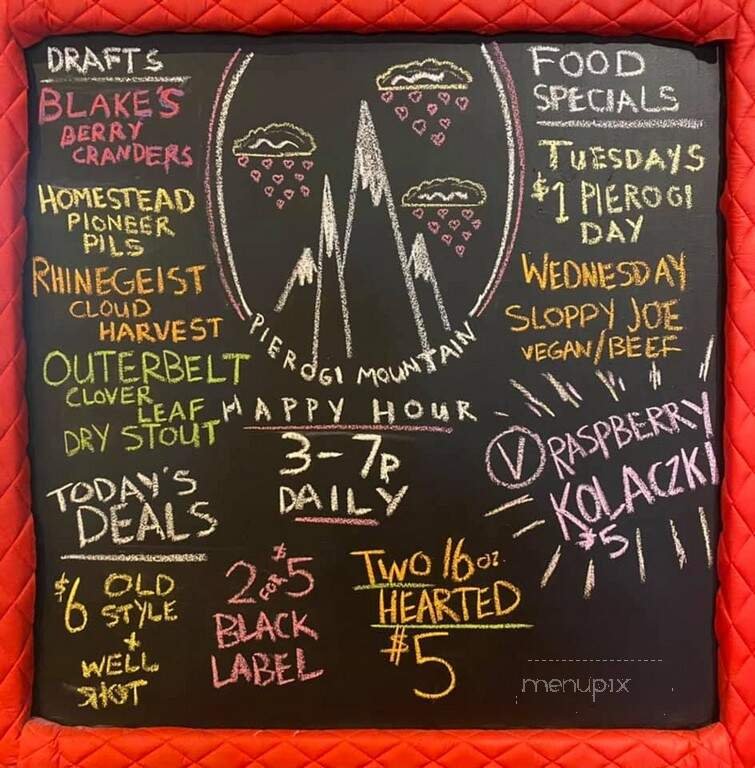 DRAFTS
BLAKE'S
BERRY
CRANDERS
HOMESTEAD
PIONEER
PILS
RHINEGEIST
CLOUD
HARVEST
OUTERBELT
CLOVER
LEAF
DRY STOUT
PIEROGI MOUNTAIN
HAPPY HOUR
3-7P
DAILY
FOOD
SPECIALS
TUESDAYS
$1 PIEROGI
DAY
WEDNESDAY
SLOPPY JOE
VEGAN/BEEF
V RASPBERRY
KOLACZKI
$5
TODAY'S
DEALS
$6 OLD
STYLE
+
WELL
SHOT
2 FOR $5
BLACK
LABEL
TWO 16 OZ.
HEARTED
$5
menupix